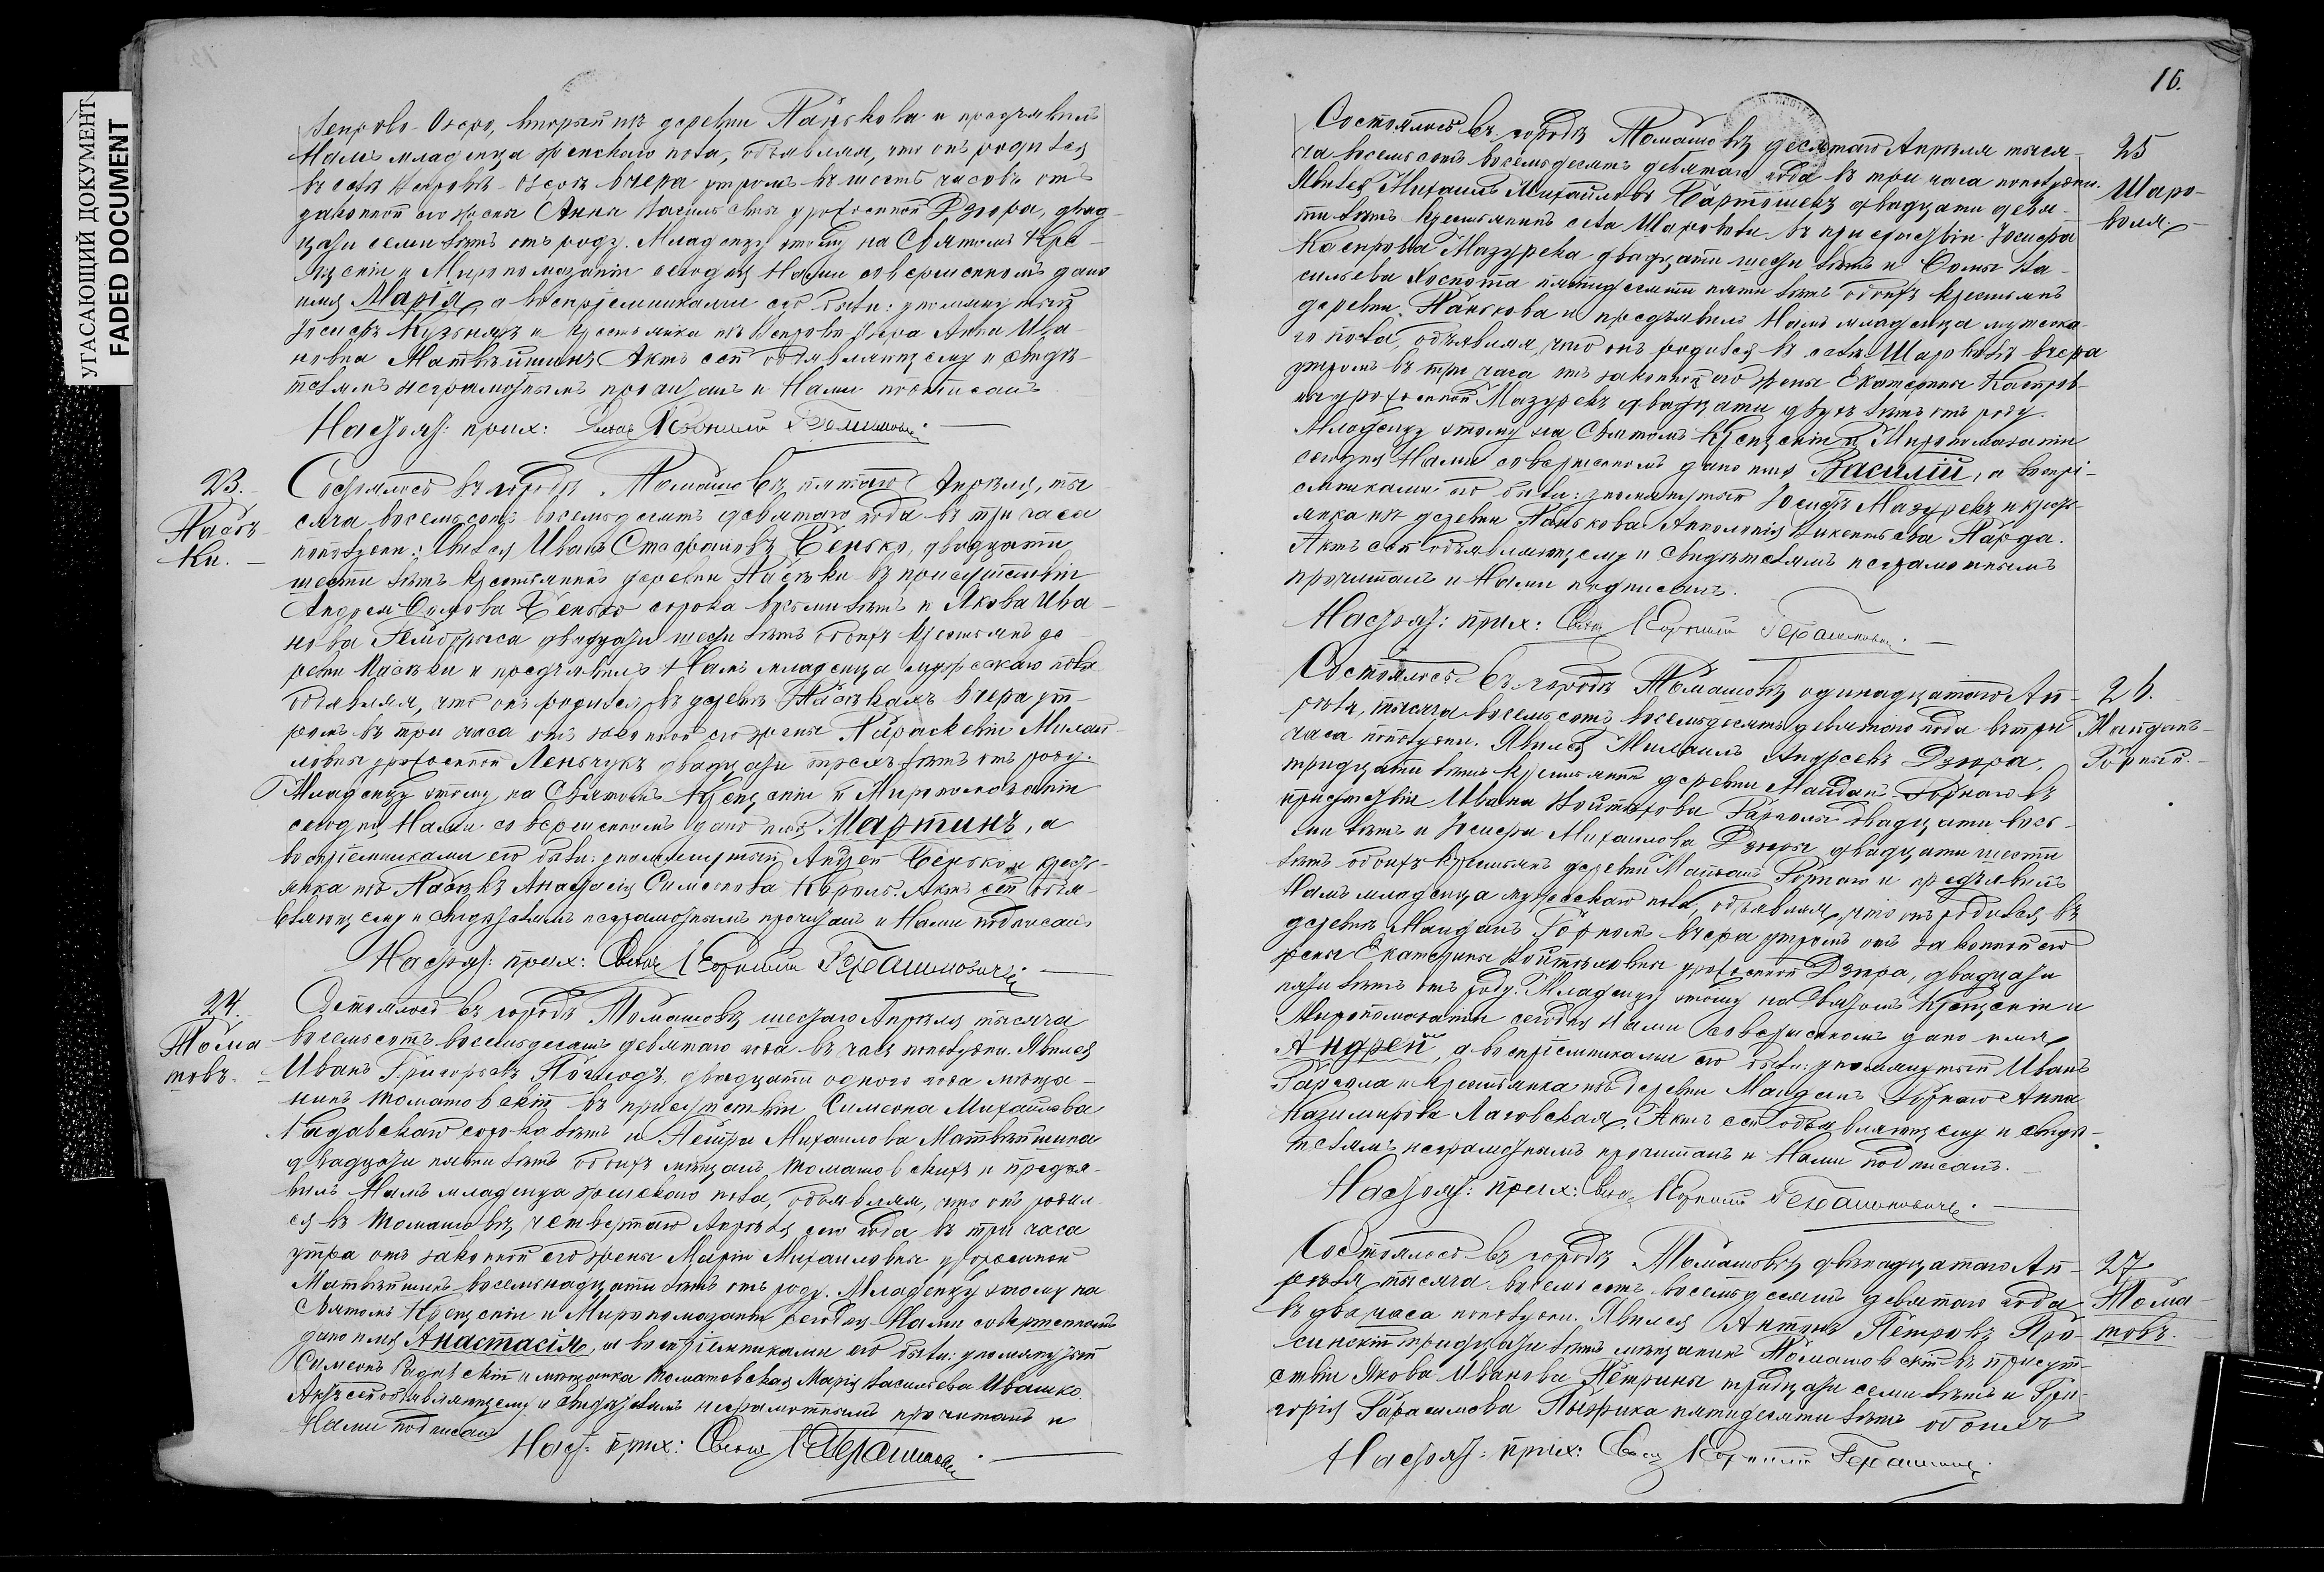 УГАСАЮЩИЙ ДОКУМЕНТ
FADED DOCUMENT
Вепрово-Озеро, вторый изъ деревни Панькова и предъявилъ
Намъ младенца женскаго пола, объявляя, что онъ родился
въ селѣ Вепровѣ-Озерѣ вчера утромъ въ шесть часовъ отъ
законной его жены Анны Васильевны урожденной Дзюра, двад-
цати семи лѣтъ отъ роду. Младенцу этому на Святомъ Кре-
щеніи и Миропомазаніи сегодня Нами совершенномъ дано
имя Марія, а воспріемниками его были: упомянутый
Іосифъ Кузьнякъ и крестьянка изъ Вепрово-Озера Анна Ива-
новна Матвѣйшинъ. Актъ сей объявляющему и свидѣ-
телямъ неграмотнымъ прочитанъ и Нами подписанъ
Настоят: прих:
23.
Пасѣ-
ки.
Состоялось въ городѣ Томашовѣ пятаго Апрѣля, ты-
сяча восемьсотъ восемьдесятъ девятаго года въ три часа
пополудни: Явился Иванъ Стефановъ Сенько, двадцати
шести лѣтъ крестьянинъ деревни Пасѣки въ присутствіи
Андрея Сенько сорока восьми лѣтъ и Якова Ива-
нова двадцати шести лѣтъ обоихъ крестьянъ де-
ревни Пасѣки и предъявилъ Намъ младенца мужескаго пола
объявляя, что онъ родился въ деревнѣ Пасѣкахъ вчера ут-
ромъ въ три часа отъ законной его жены Параскевіи Михай-
ловны урожденной Леньчукъ двадцати трехъ лѣтъ отъ роду.
Младенцу этому на Святомъ Крещеніи и Миропомазаніи
сегодня Нами совершенномъ дано имя Мартинъ, а
воспріемниками его были: упомянутый Андрей Сенько и кресть-
янка изъ Пасѣкъ Анастасія Симеонова Король. Актъ сей объя-
вляющему и свидѣтелямъ неграмотнымъ прочитанъ и Нами подписанъ
Настоят: прих: Свящ Корнилій Герашимовичъ
24.
Тома
шовъ.
Состоялось въ городѣ Томашовѣ шестаго Апрѣля тысяча
восемьсотъ восемьдесятъ девятаго года въ часъ пополудни. Явился
Иванъ Григорьевъ двадцати одного года мѣща-
нинъ томашовскій въ присутствіи Симеона Михайлова
Радавскаго сорока лѣтъ и Петра Михаилова Матвѣйшина
двадцати пяти лѣтъ обоихъ мѣщанъ томашовскихъ и предъя-
вилъ Намъ младенца женскаго пола, объявляя, что онъ родил-
ся въ Томашовѣ четвертаго Апрѣля сего года въ три часа
утра отъ законной его жены Маріи Михаиловны урожденной
Матвѣйшинъ восемьнадцати лѣтъ отъ роду. Младенцу этому на
Святомъ Крещеніи и Миропомазаніи сегодня Нами совершенномъ
дано имя Анастасія, а воспріемниками его были: упомянутый
Симеонъ Радавскій и мѣщанка томашовская Марія Васильева Ивашко
Актъ сей объявляющему и свидѣтелямъ неграмотнымъ прочитанъ и
Нами подписанъ
Наст: прих: Свящ К Герашимович
16.
Состоялось въ городѣ Томашовѣ десятаго Апрѣля тыся-
ча восемьсотъ восемьдесятъ девятаго года въ три часа пополудни.
Явился Михаилъ Михайловъ Бартошекъ двадцати девя-
ти лѣтъ крестьянинъ села Шароволи въ присутствіи Іосифа
Каспрова Мазурека двадцати шести лѣтъ и Ва-
сильева пятидесяти пяти лѣтъ обоихъ крестьянъ
деревни Панькова и предъявилъ Намъ младенца мужеска-
го пола, объявляя, что онъ родился въ селѣ Шароволѣ вчера
утромъ въ три часа отъ законной его жены Екатерины Каспров-
ны урожденной Мазурекъ двадцати двухъ лѣтъ отъ роду.
Младенцу этому на Святомъ Крещеніи и Миропомазаніи
сегодня Нами совершенномъ дано имя Василій, а воспрі-
емниками его были: упомянутый Іосифъ Мазурекъ и кресть-
янка изъ деревни Панькова Апполонія Викентьева Парда.
Актъ сей объявляющему и свидѣтелямъ неграмотнымъ
прочитанъ и Нами подписанъ.
Настоят: прих: Свящ Корнилій Герашимович
25
Шаро-
воля.
Состоялось въ городѣ Томашовѣ одинадцатаго Ап-
рѣля, тысяча восемьсотъ восемьдесятъ девятаго года въ три
часа пополудни. Явился Михаилъ Андреевъ Дзюра,
тридцати лѣтъ крестьянинъ деревни Майданъ-Горнаго въ
присутствіи Ивана Войтѣхова Гарголы двадцати вось-
ми лѣтъ и Іосифа Михаилова Дзюры двадцати шести
лѣтъ обоихъ крестьянъ деревни Майданъ Горнаго и предъявилъ
Намъ младенца мужескаго пола, объявляя, что онъ родился въ
деревнѣ Майданъ Горномъ вчера утромъ отъ законной его
жены Екатерины Войтѣховны урожденной Дзюра, двадцати
пяти лѣтъ отъ роду. Младенцу этому на Святомъ Крещеніи и
Миропомазаніи сегодня Нами совершенномъ дано имя
Андрей, а воспріемниками его были: упомянутый Иванъ
Гаргола и крестьянка изъ деревни Майданъ Горнаго Анна
Казимирова Лаговская. Актъ сей объявляющему и свидѣ-
телямъ неграмотнымъ прочитанъ и Нами подписанъ.
Настоят: прих: Свящ Корнилій Герашимовичъ.
26.
Майданъ-
Горный.
Состоялось въ городѣ Томашовѣ двѣнадцатаго Ап-
рѣля тысяча восемьсотъ восемьдесятъ девятаго года
въ два часа пополудни. Явился Антонъ Петровъ Про-
синскій тридцати лѣтъ мѣщанинъ Томашовскій въ присут-
ствіи Якова Иванова Петрины тридцати семи лѣтъ и Гри-
горія Гарасимова пятидесяти лѣтъ обоихъ
Настоят: прих: Свящ Корнилій Герашимович
27
Тома-
шовъ.